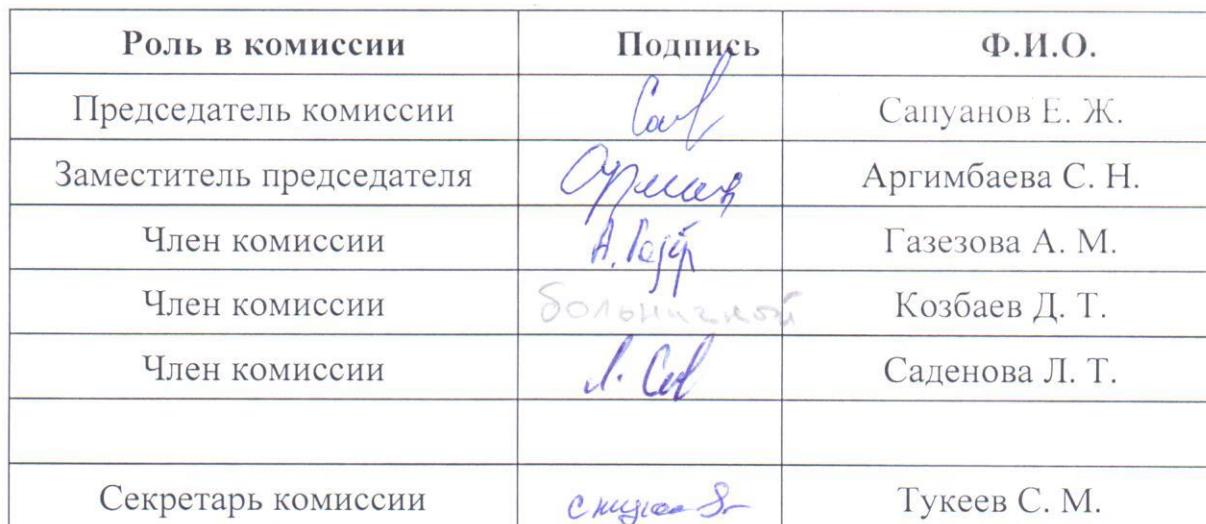 Роль в комиссии Подпись Ф.И.О.
Председатель комиссии Сапуанов Е. Ж.
Заместитель председателя Аргимбаева С. Н.
Член комиссии Газезова А. М.
Член комиссии больничной Козбаев Д. Т.
Член комиссии Саденова Л. Т.
Секретарь комиссии Тукеев С. М.